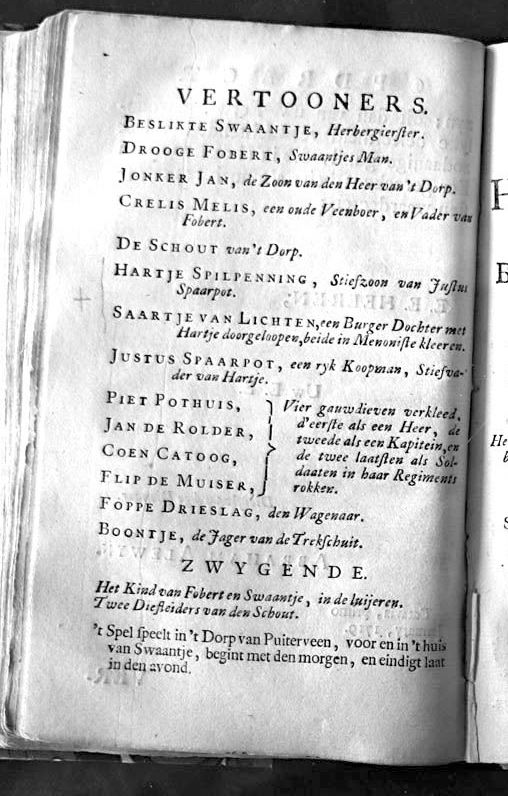 VERTOONERS.
BESLIKTE SWAANTJE, Herbergierſter.
DROOGE FOBERT, Swaantjes Man.
JONKER JAN, de Zoon van den Heer van 't Dorp.
CRELIS MELIS, een oude Veenboer, en Vader van
Fobert.
DE SCHOUT van 't Dorp.
HARTJE SPILPENNING, Stiefzoon van Juſtus
Spaarpot.
SAARTJE VAN LICHTEN, een Burger Dochter met
Hartje doorgeloopen, beide in Menoniſte kleeren.
JUSTUS SPAARPOT, een ryk Koopman, Stiefva-
der van Hartje.
PIET POTHUIS,
JAN DE ROLDER,
COEN CATOOG,
FLIP DE MUISER,
Vier gauwdieven verkleed,
d'eerſte als een Heer, de
tweede als een Kapitein, en
de twee laatſten als Sol-
daaten in haar Regiments
rokken.
FOPPE DRIESLAG, den Wagenaar.
BOONTJE, de Jager van de Trekſchuit.
ZWYGENDE.
Het Kind van Fobert en Swaantje, in de luijeren.
Twee Diefleiders van den Schout.
't Spel ſpeelt in 't Dorp van Puiterveen, voor en in 't huis
van Swaantje, begint met den morgen, en eindigt laat
in den avond.